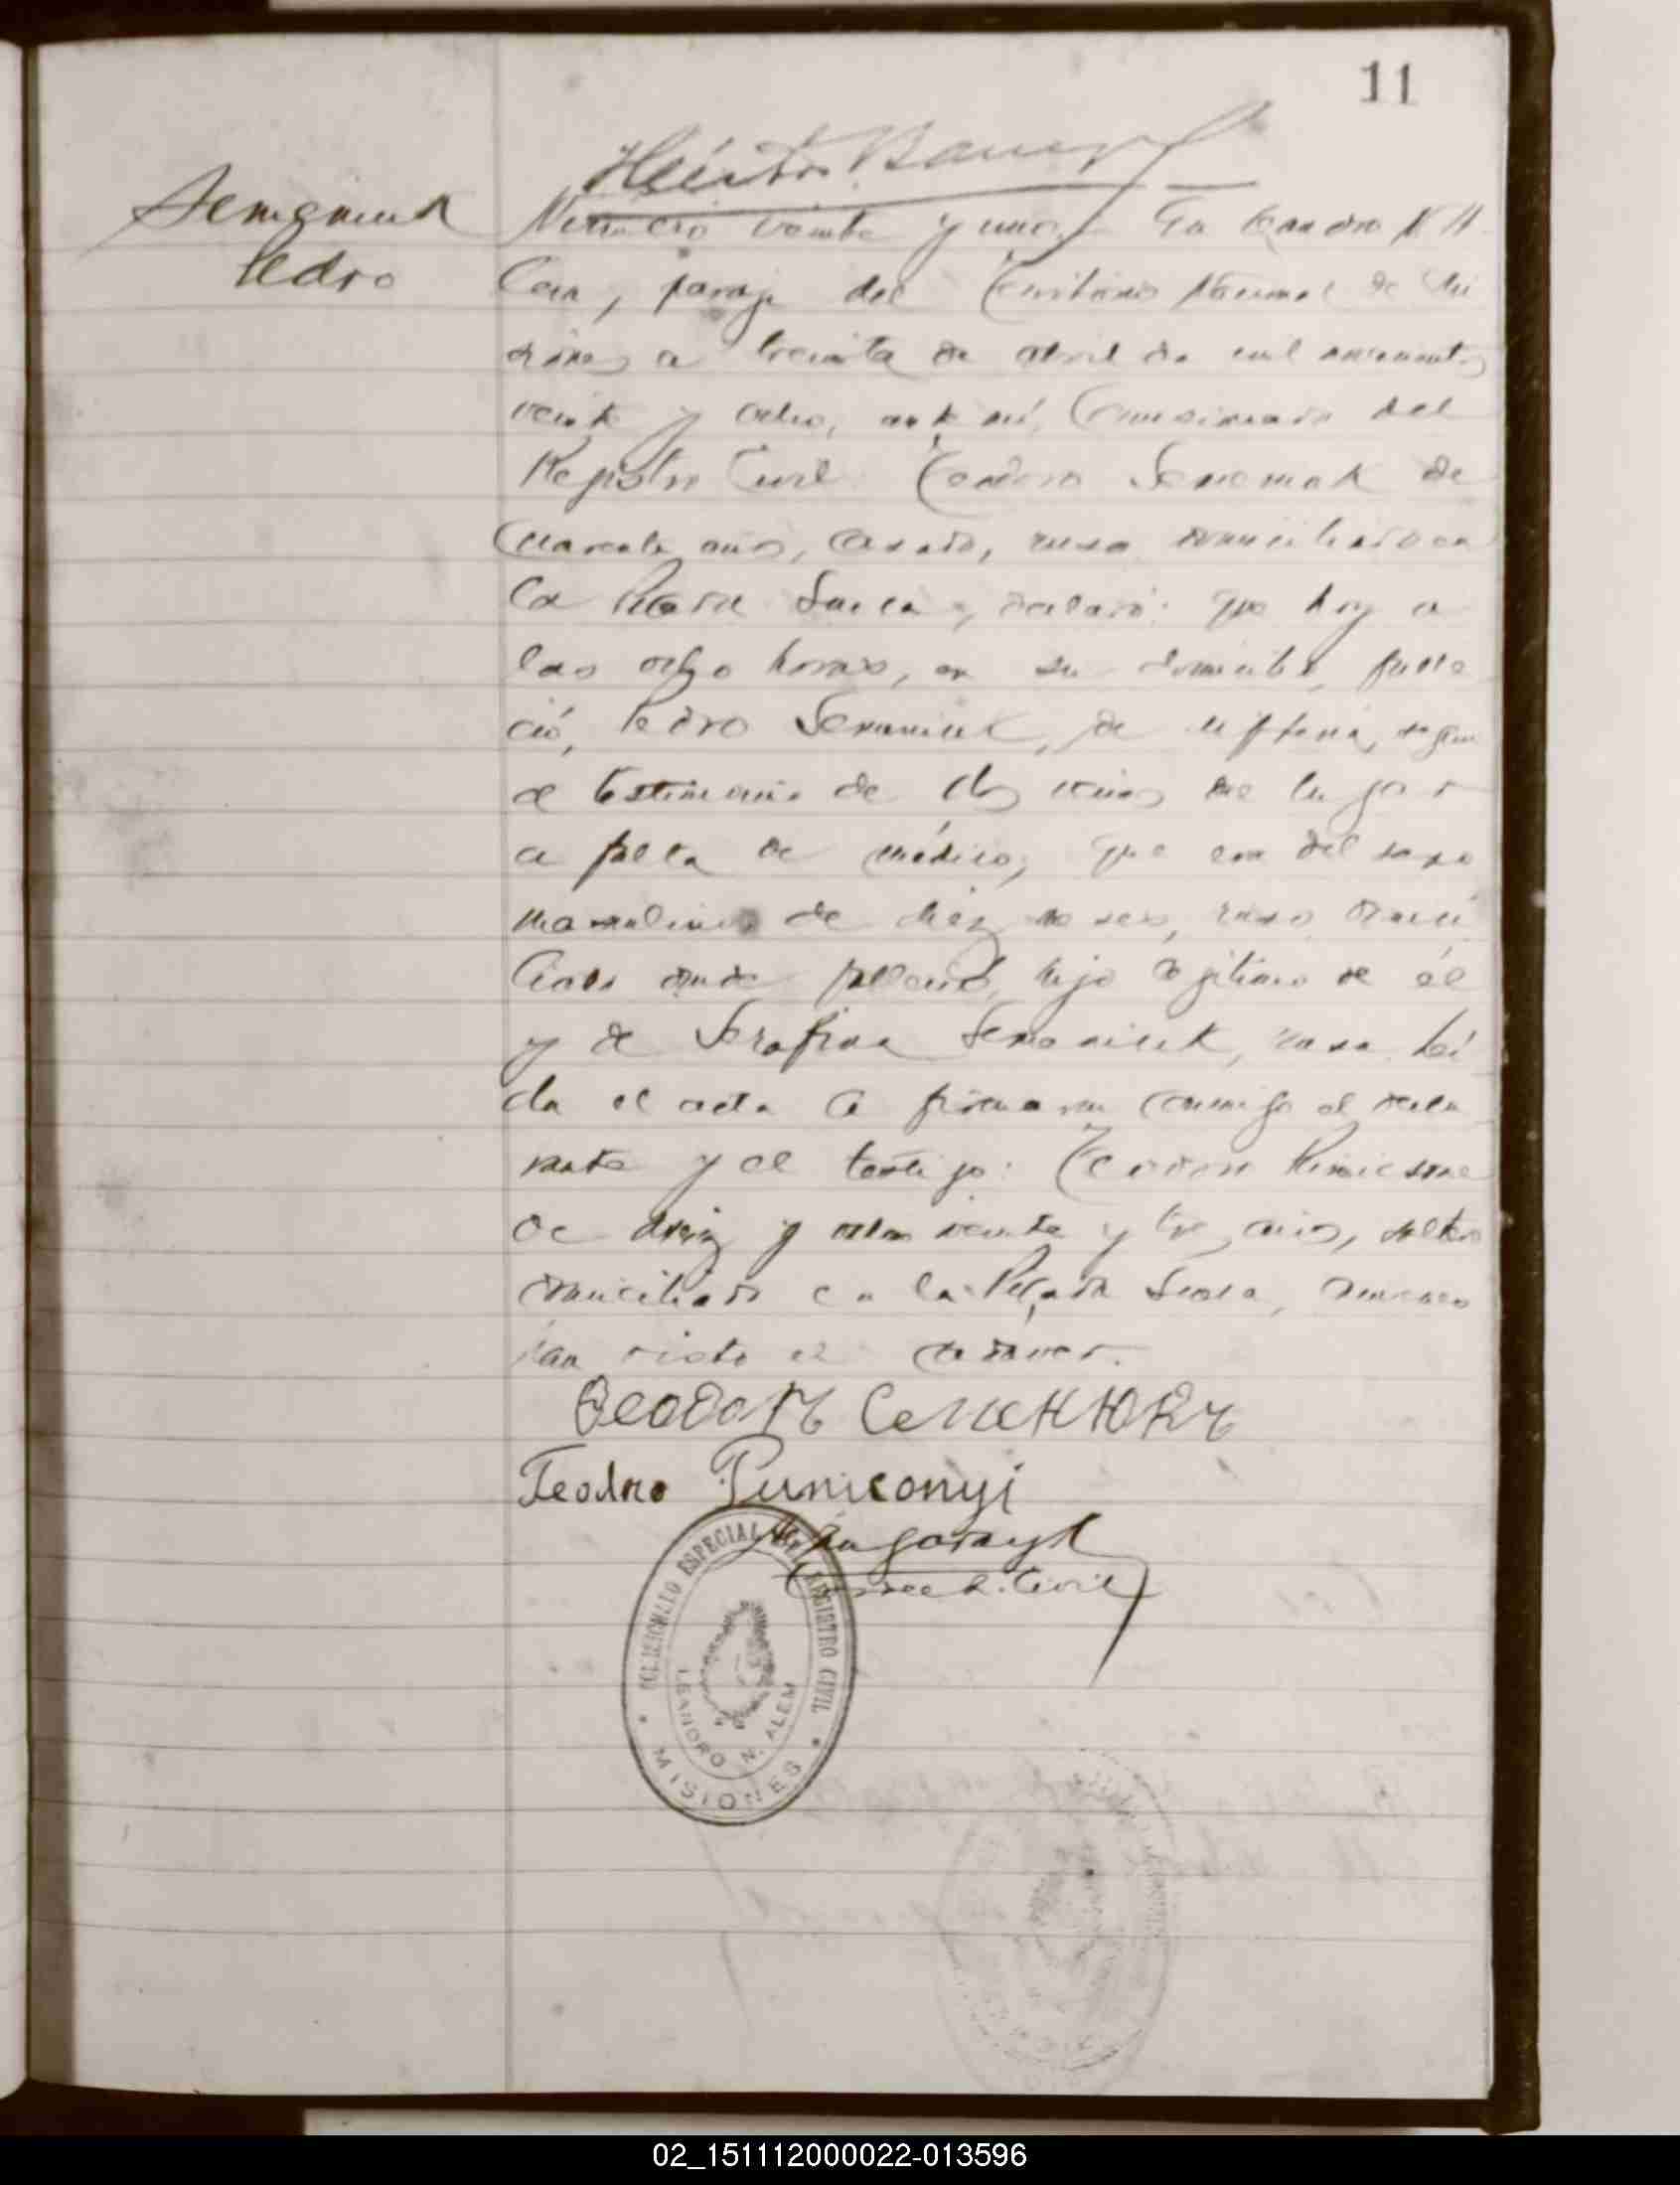 11
Héctor
Semeniuk
Pedro
Número veinte y uno. En Leandro N. A
lem, paraje del Territorio Nacional de Mi
siones a treinta de abril de mil novecientos
veinte y ocho, ante mí, Comisionado del
Registro Civil: Teodoro Semeniuk de
cuarenta años, casado, ruso domiciliado en
la Picada Sueca, declaró: que hoy a
las ocho horas, en su domicilio, falle
ció, Pedro Semeniuk, de difteria, según
el testimonio de dos vecinos del lugar
a falta de médico, que era del sexo
masculino, de diez meses, ruso, domici
liado donde falleció, hijo legítimo de él
y de Serafina Semeniuk, rusa. Leí
da el acta la firmaron conmigo el decla
rante y el testigo: Teodoro
de diez y ocho veinte y tres años, soltero
domiciliado en la Picada Sueca,
han visto el cadáver.
Ѳеодоръ Семенюкъ
Teodoro Puniconyi
R. Civil
COMISIONADO ESPECIAL DEL REGISTRO CIVIL
LEANDRO N. ALEM
MISIONES
02_151112000022-013596